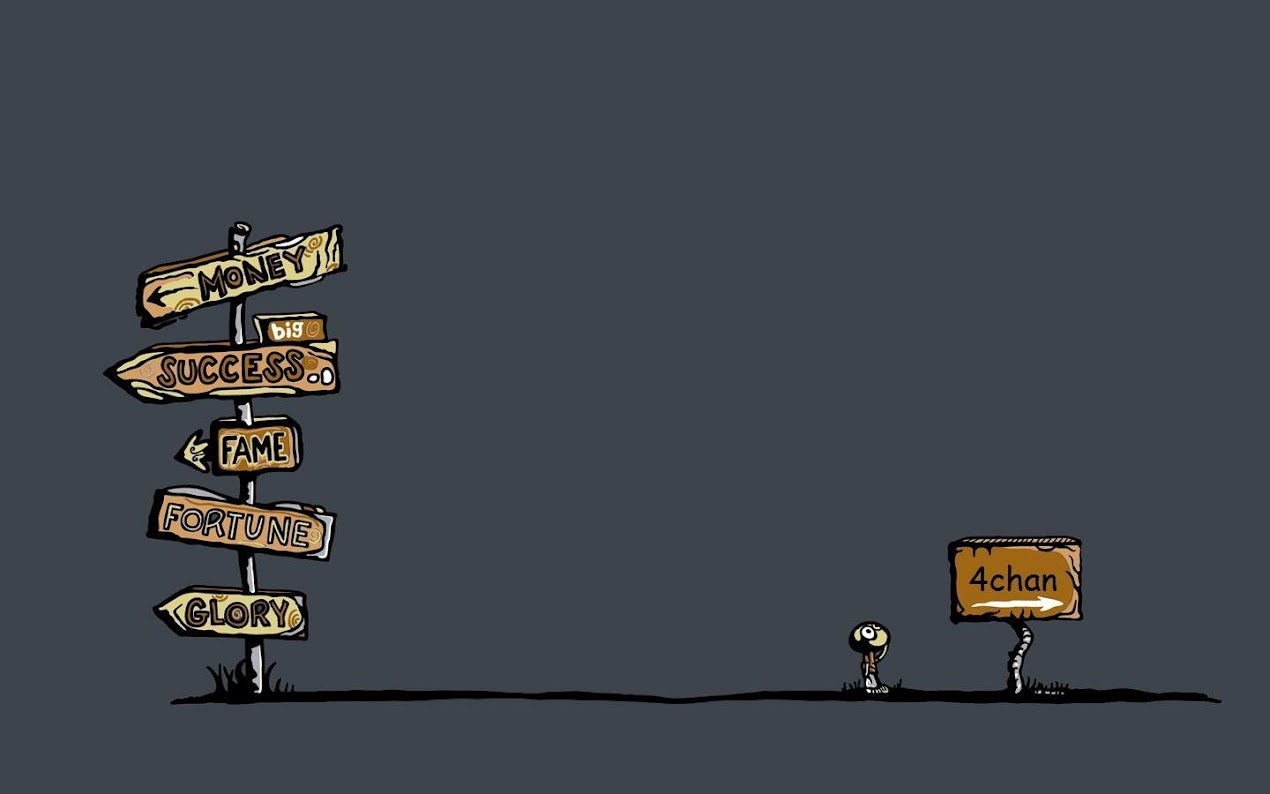 MONEY
big
SUCCESS
FAME
FORTUNE
GLORY
4chan